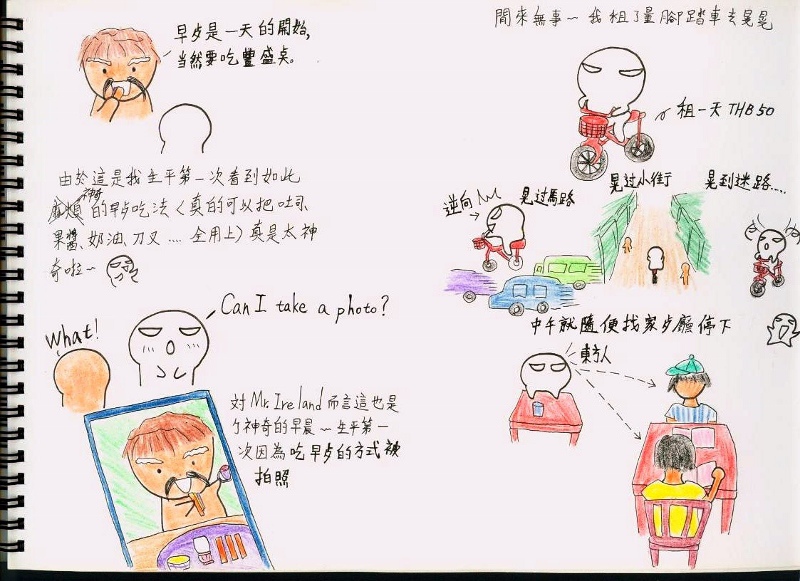 早歺是一天的開始,
當然要吃豐盛点。
由於這是我生平第一次看到如此
神奇
的早歺吃法〈真的可以把吐司
果醬、奶油、刀叉 .... 全用上〉真是太神
奇啦~
What!
Can I take a photo?
対 Mr. Ireland 而言這也是
ㄅ神奇的早晨~生平第一
次因為吃早歺的方式被
拍照
閒來無事~ 我租了量腳踏車去晃晃
租一天 THB 50
逆向
晃过馬路
晃过小街
晃到迷路....
中午就隨便找家歺廳停下
東方人